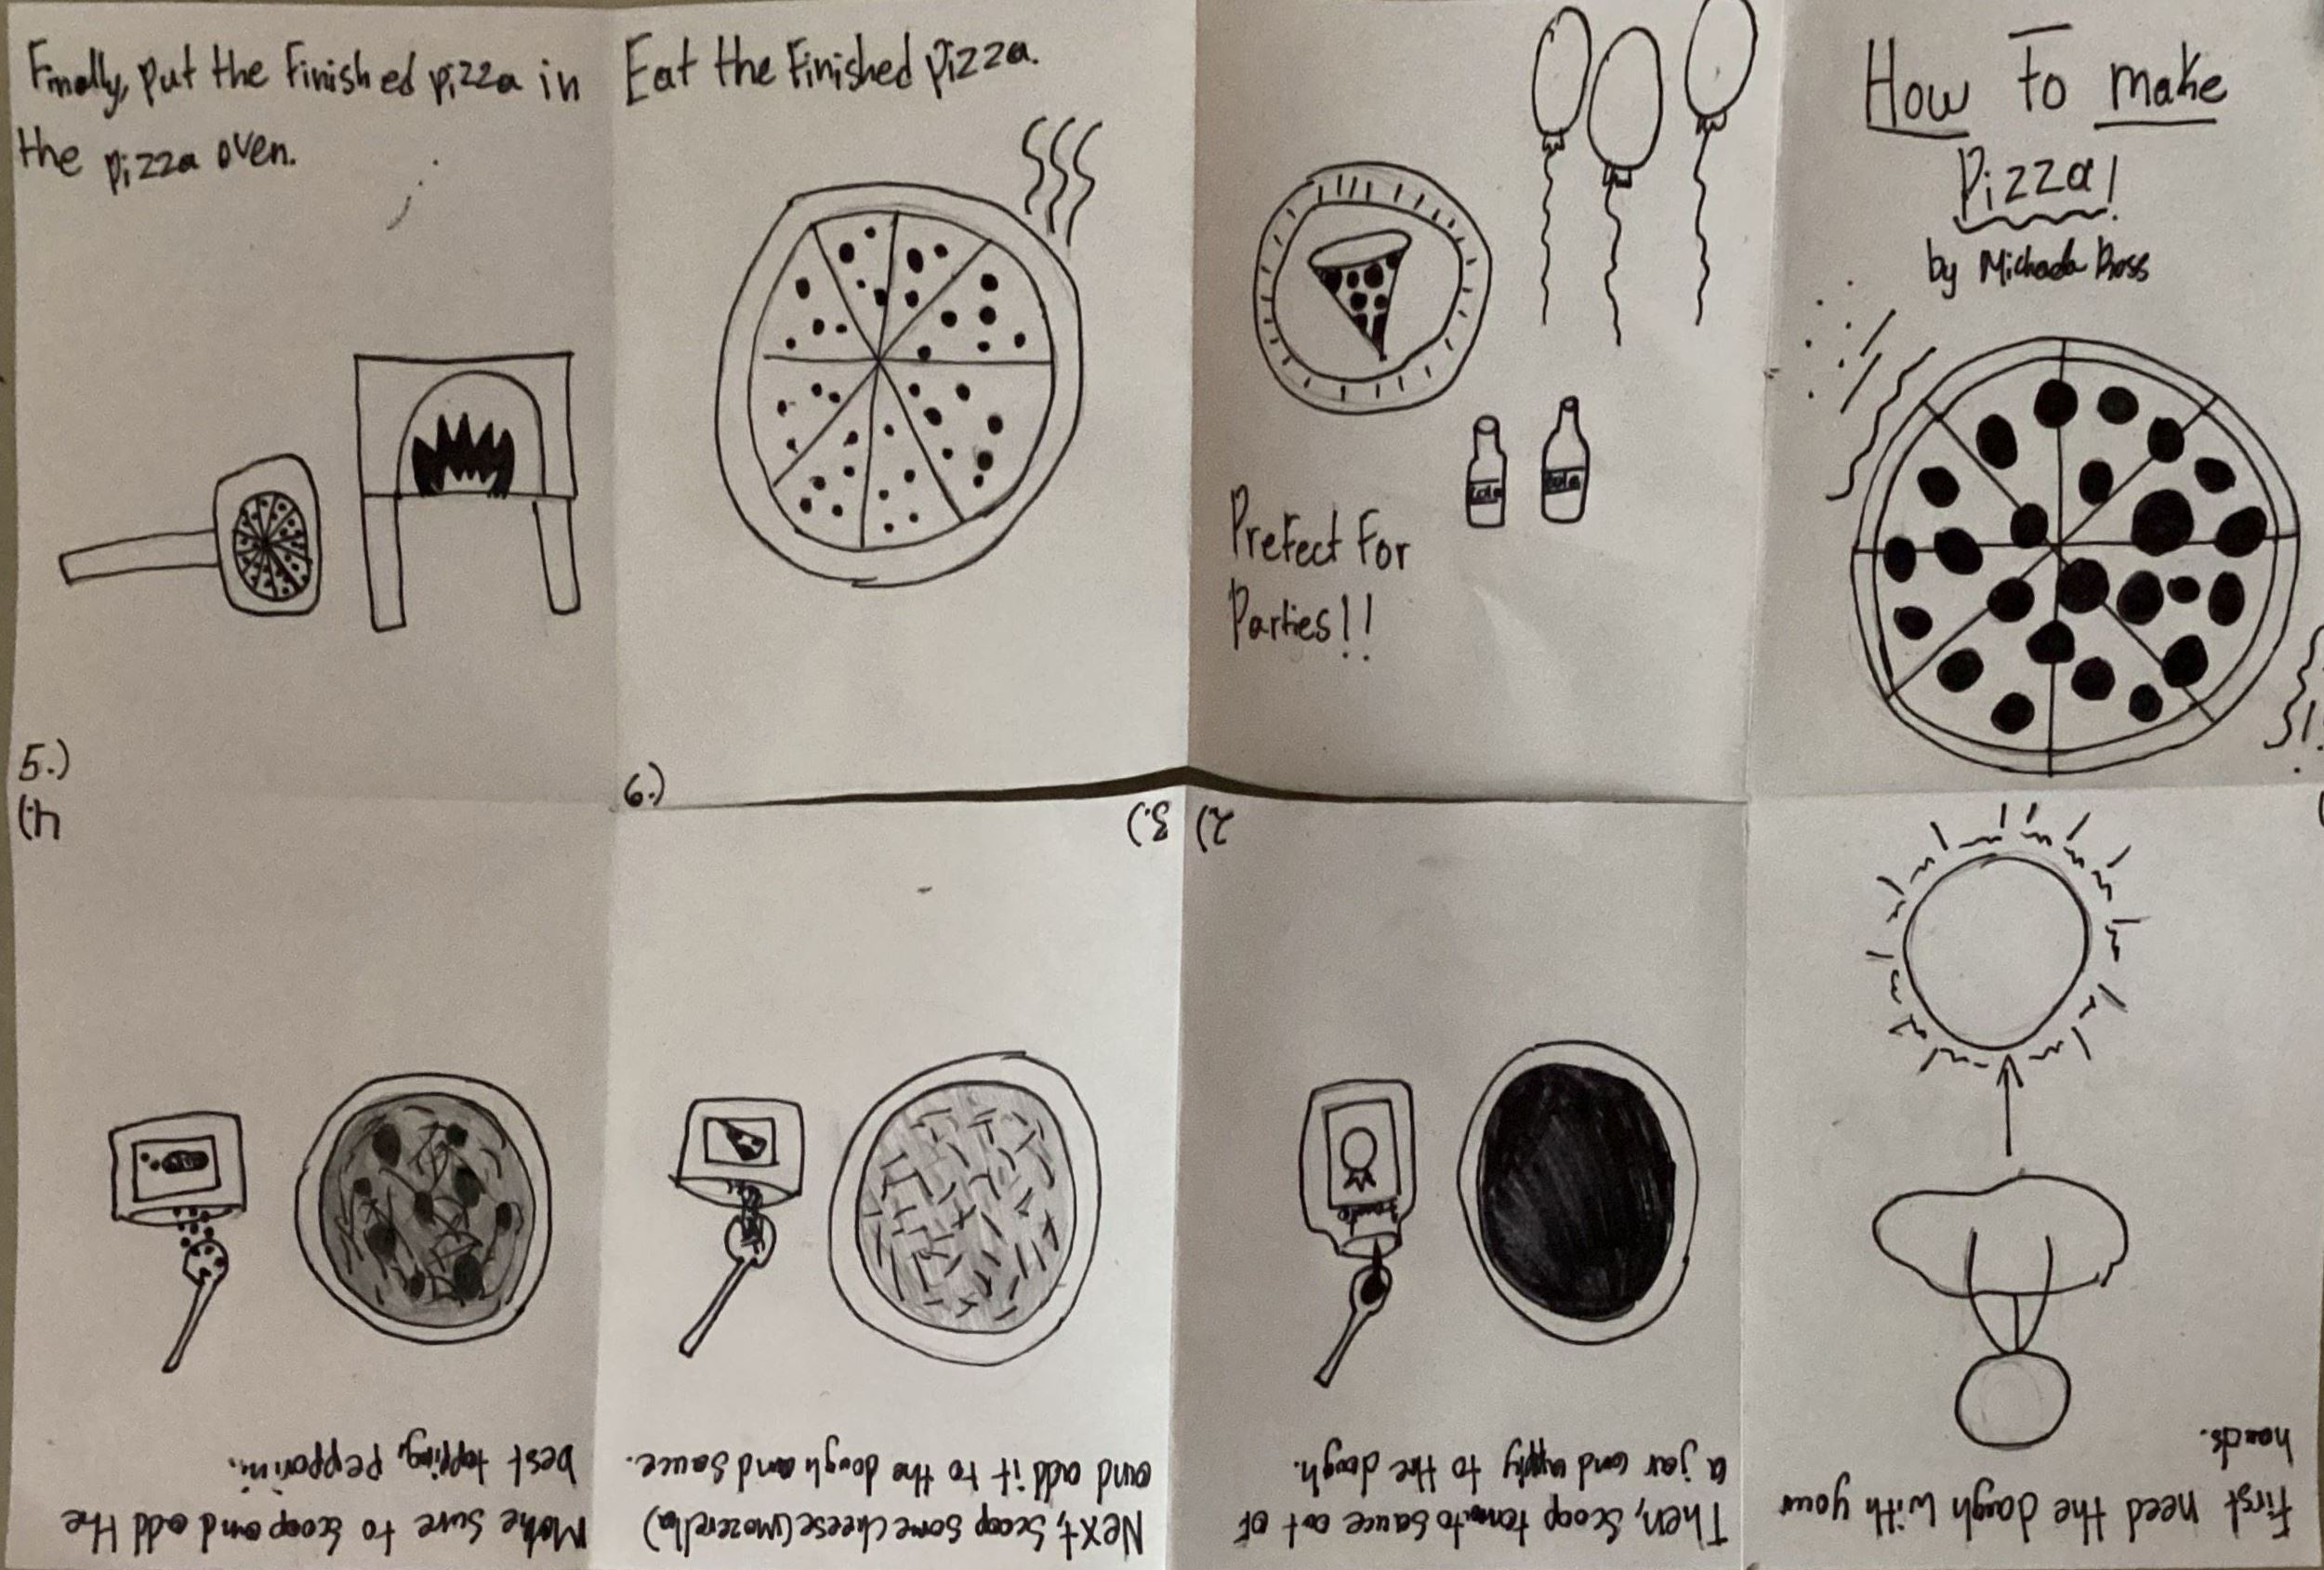 How To make
Pizza!
by Michaela Boss
First need the dough with your
hands.
2.)
Then, Scoop tomato sauce out of
a jar and apply to the dough.
3.)
Next, Scoop some cheese (mozerella)
and add it to the dough and sauce.
4.)
Make sure to scoop and add the
best topping, pepporini.
5.)
Finally, put the Finished pizza in
the pizza oven.
6.)
Eat the Finished pizza.
Prefect For
Parties!!
Cola